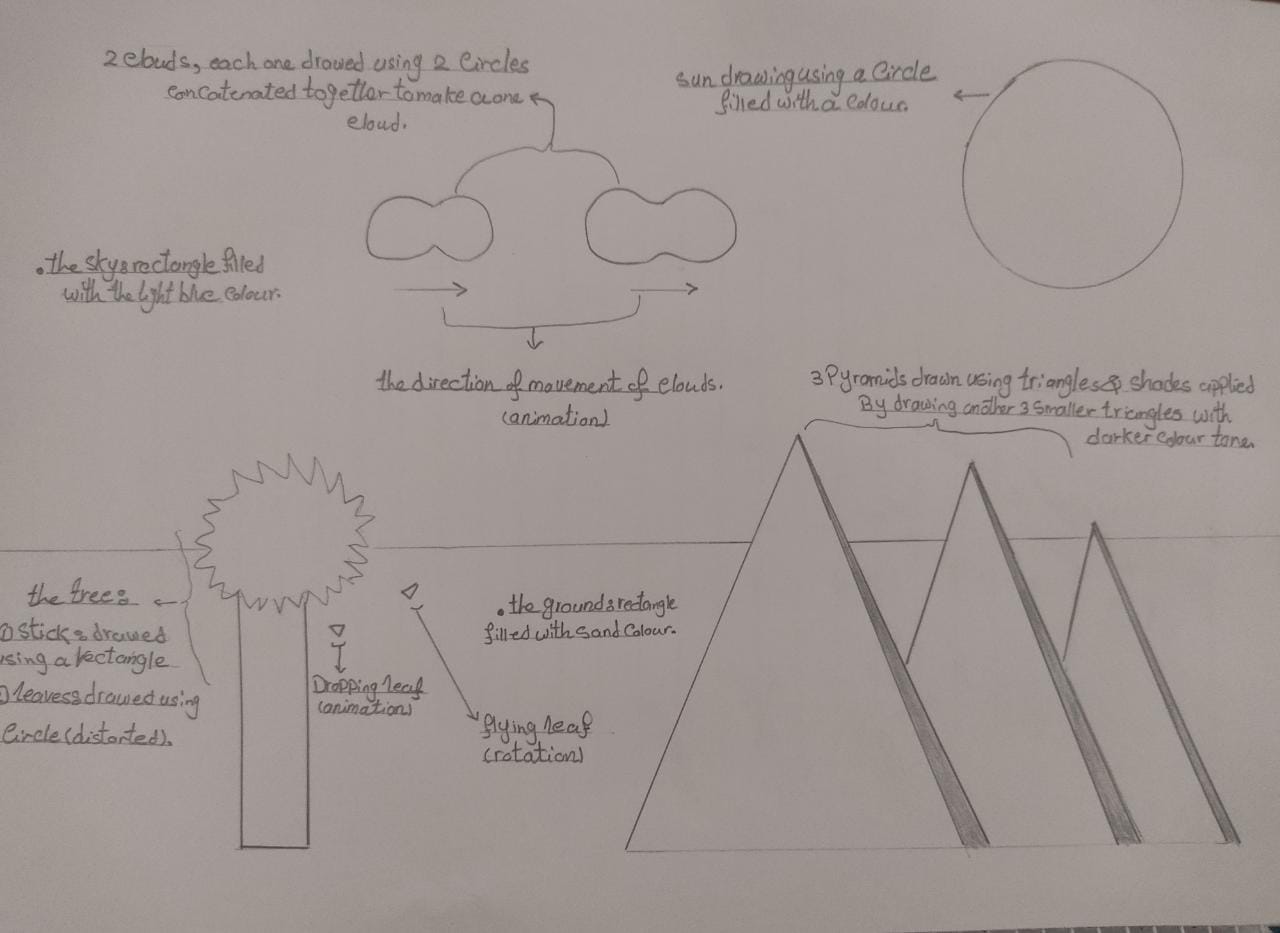 2 clouds, each one drawed using 2 Circles
concatenated together to make a one
cloud.
sun drawing using a Circle
filled with a Colour.
.the sky: rectangle filled
with the light blue Colour.
the direction of movement of clouds.
(animation)
3 Pyramids drawn using triangles & shades applied
By drawing another 3 smaller triangles with
darker colour tone.
the tree:
stick: drawed
using a rectangle
leaves: drawed using
Circle (distorted).
Dropping leaf
(animation)
flying leaf
(rotation)
.the ground: rectangle
filled with sand Colour.